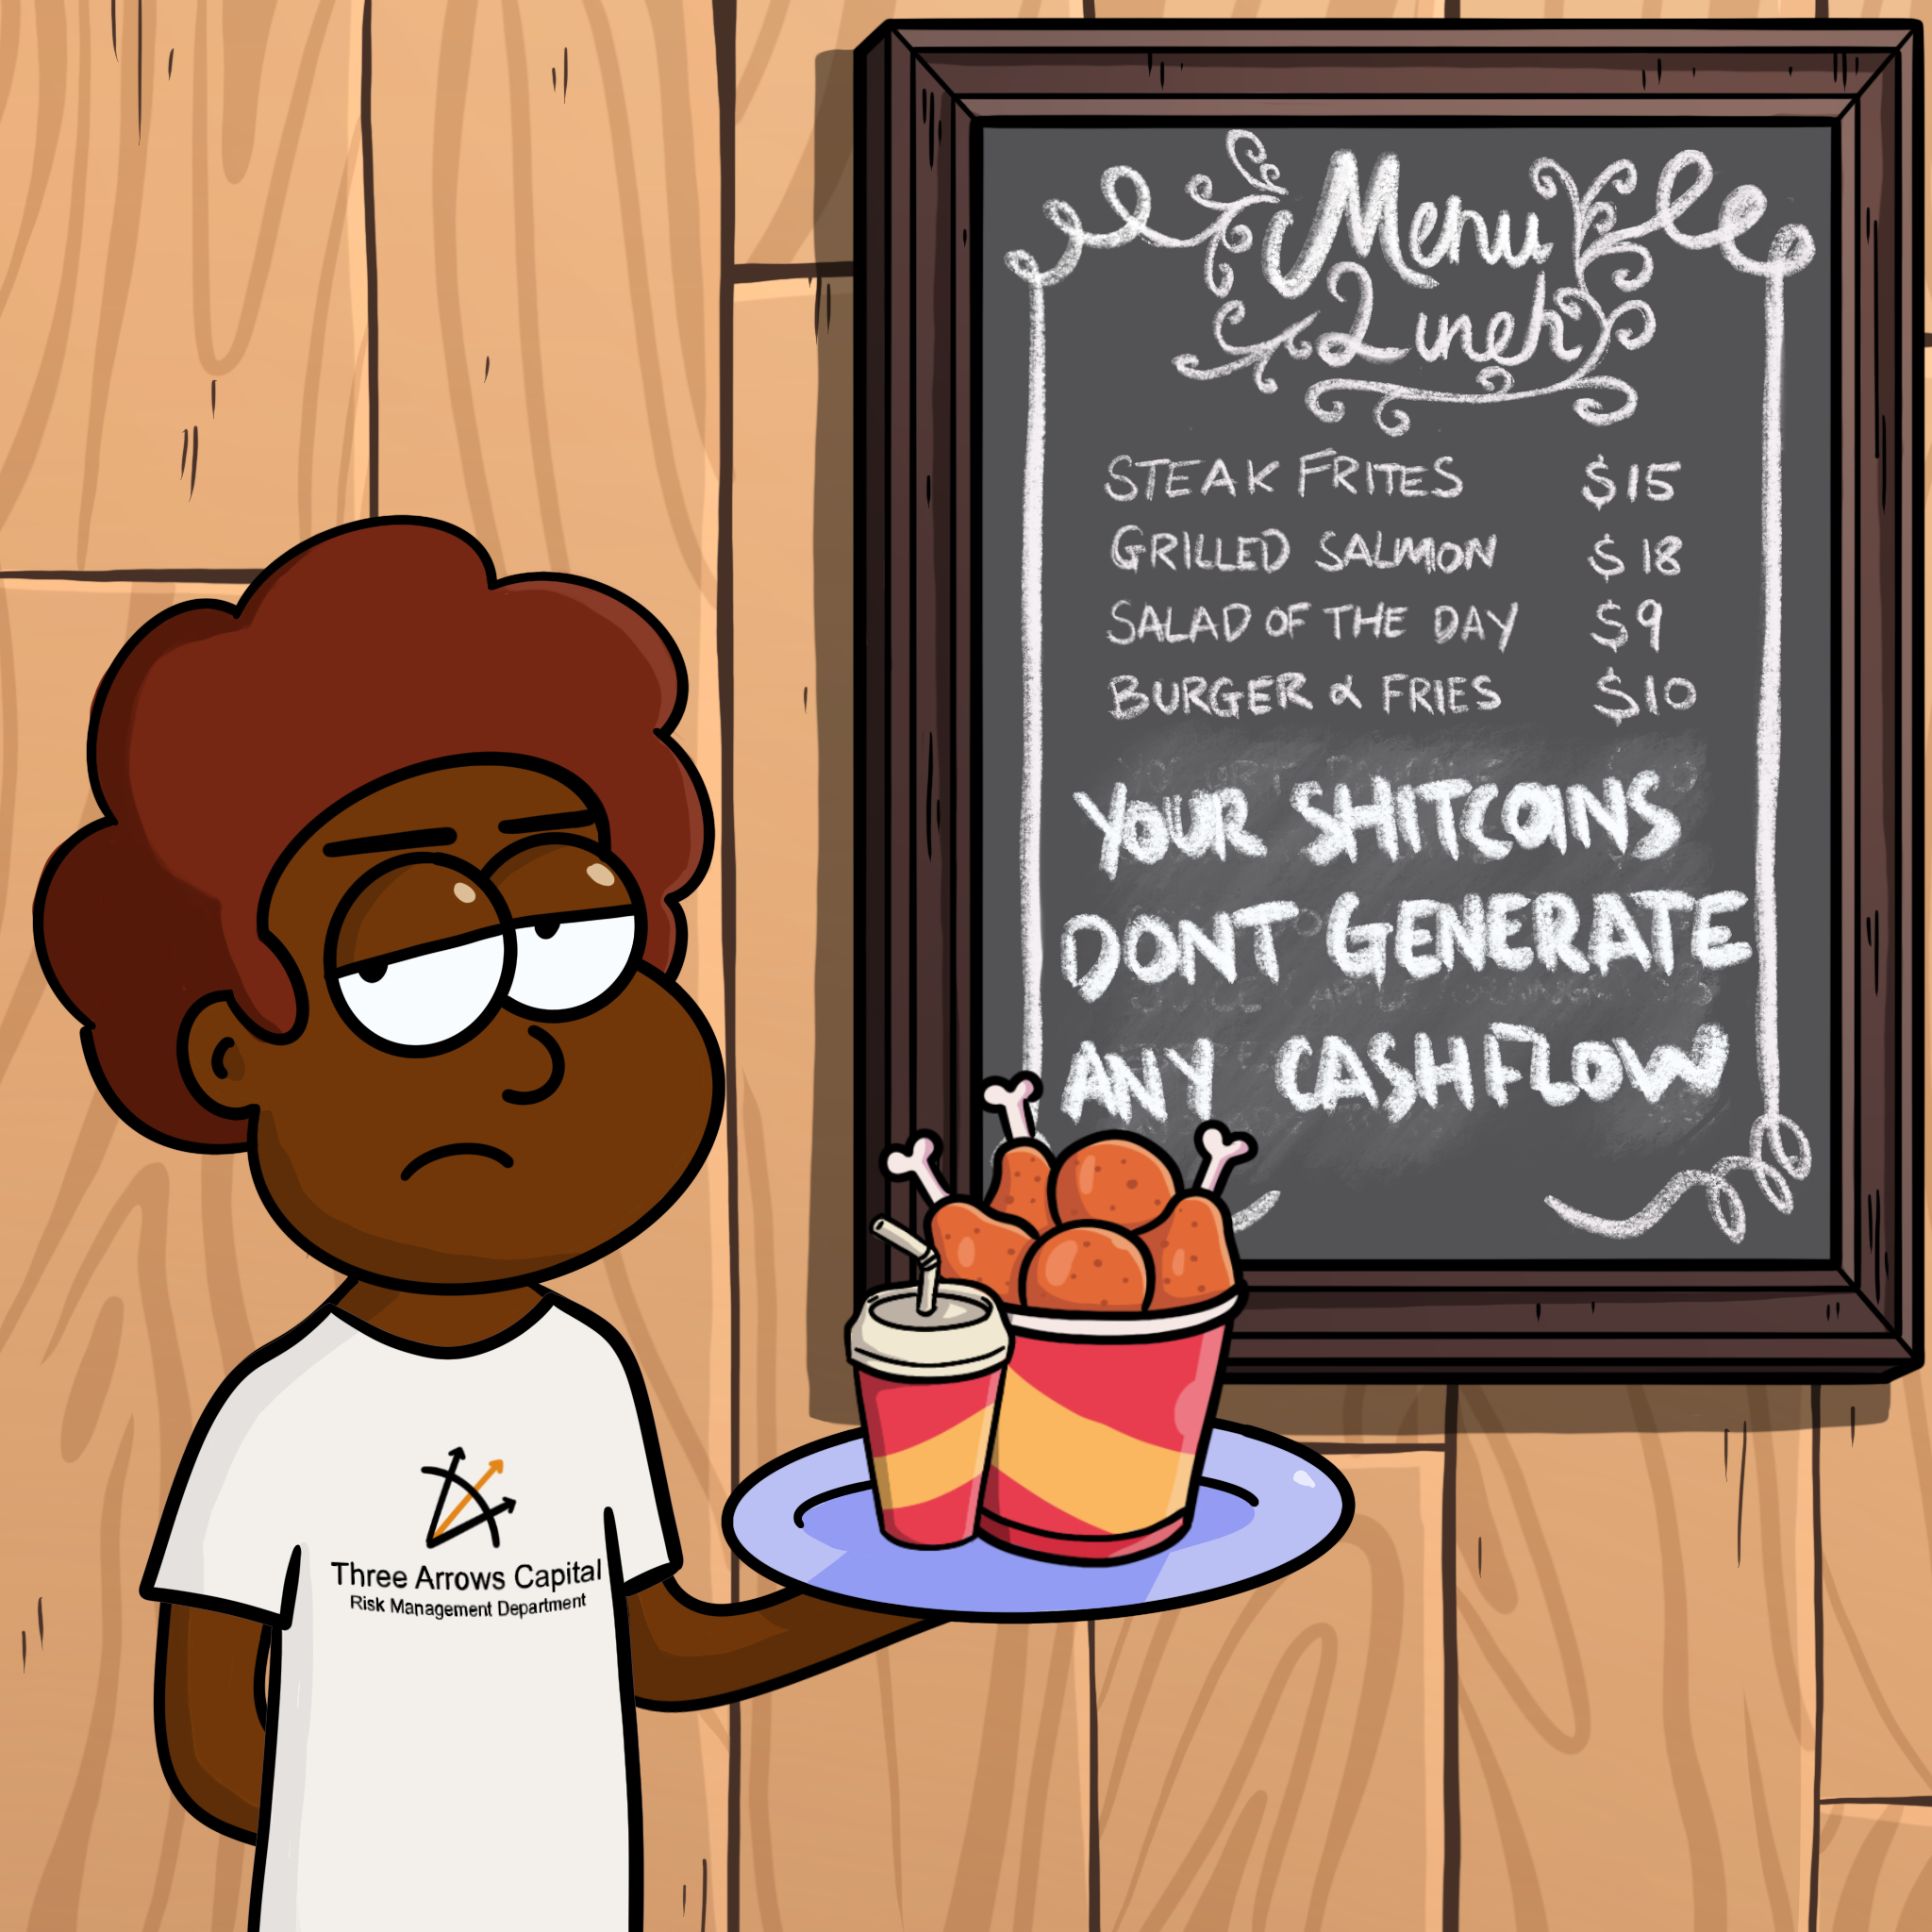 Menu
Lunch
STEAK FRITES $15
GRILLED SALMON $18
SALAD OF THE DAY $9
BURGER & FRIES $10
YOUR SHITCOINS
DONT GENERATE
ANY CASHFLOW
Three Arrows Capital
Risk Management Department